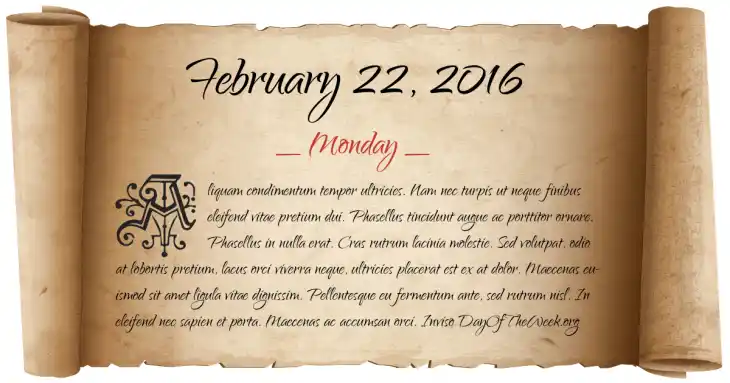 February 22, 2016
_ Monday _
Aliquam condimentum tempor ultricies. Nam nec turpis ut neque finibus
eleifend vitae pretium dui. Phasellus tincidunt augue ac porttitor ornare.
Phasellus in nulla erat. Cras rutrum lacinia molestie. Sed volutpat, odio
at lobortis pretium, lacus orci viverra neque, ultricies placerat est ex at dolor. Maecenas eu-
ismod sit amet ligula vitae dignissim. Pellentesque eu fermentum ante, sed rutrum nisl. In
eleifend nec sapien et porta. Maecenas ac accumsan orci. Inviso DayOfTheWeek.org